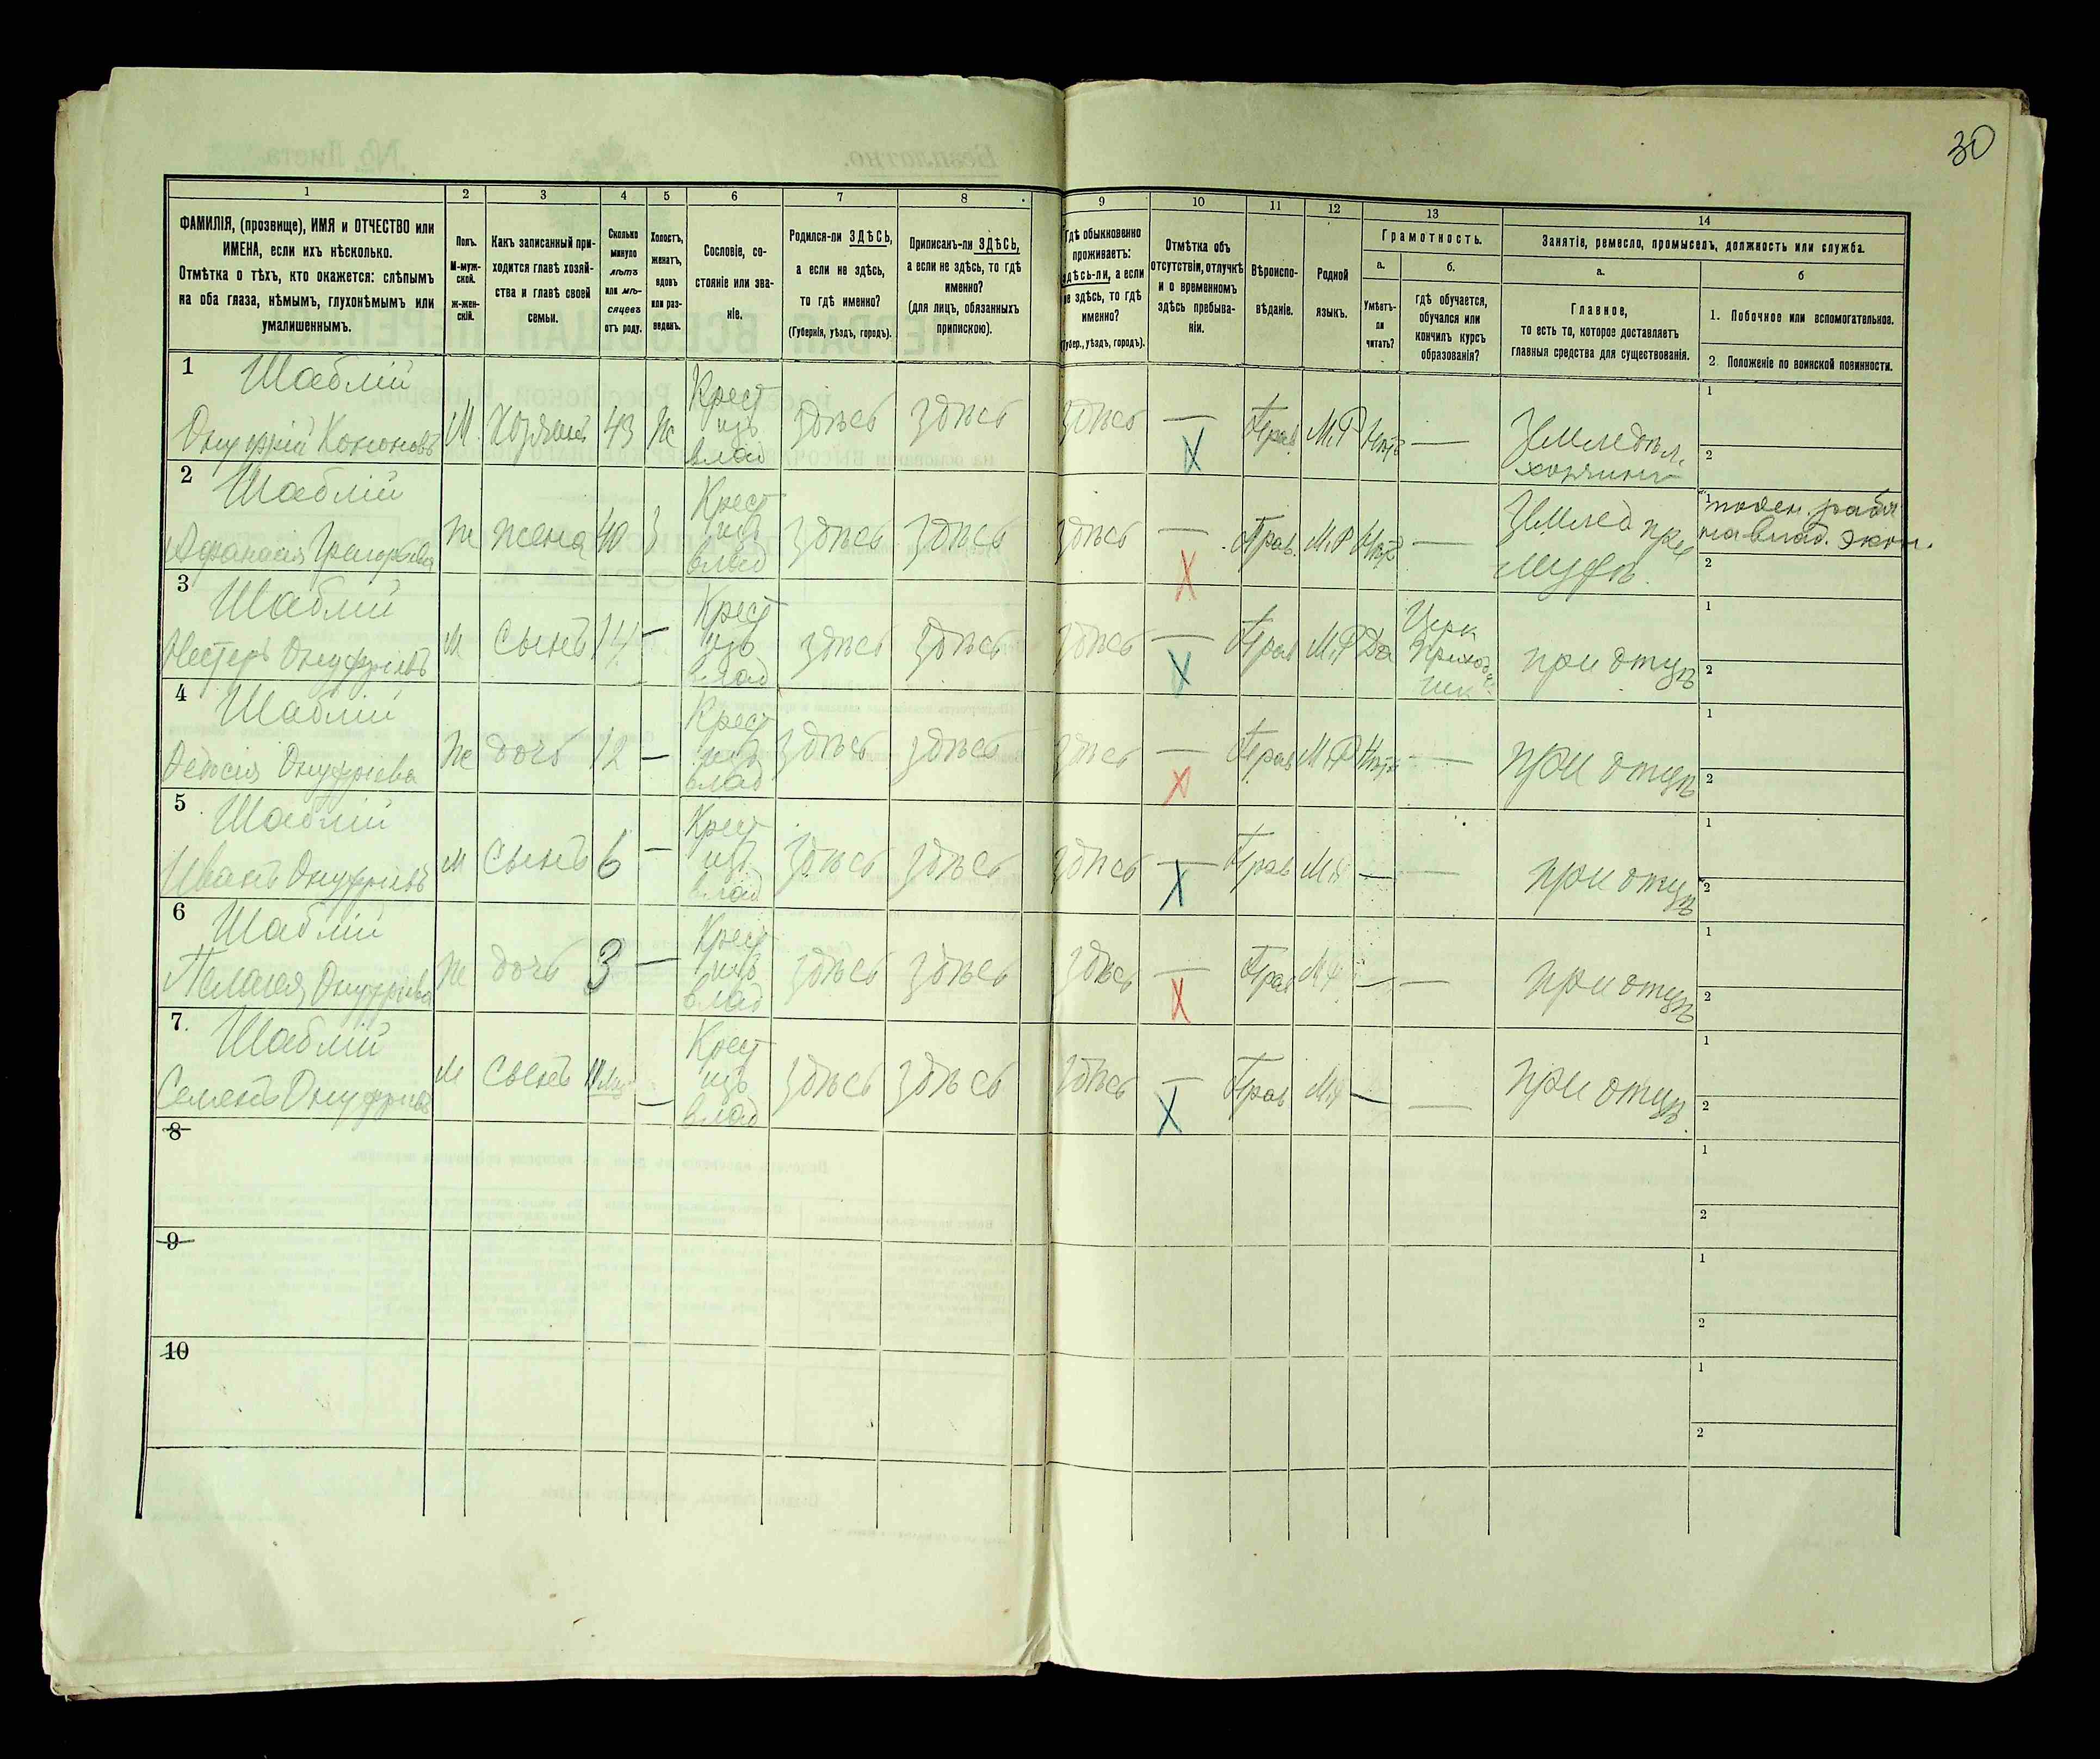 30
1 2 3 4 5 6 7 8 9 10 11 12 13 14
ФАМИЛІЯ, (прозвище), ИМЯ и ОТЧЕСТВО или
ИМЕНА, если ихъ нѣсколько.
Отмѣтка о тѣхъ, кто окажется: слѣпымъ
на оба глаза, нѣмымъ, глухонѣмымъ или
умалишеннымъ.
Полъ.
М-муж-
ской.
ж-жен-
скій.
Какъ записанный при-
ходится главѣ хозяй-
ства и главѣ своей
семьи.
Сколько
минуло
лѣтъ
или мѣ-
сяцевъ
отъ роду.
Холостъ,
женатъ,
вдовъ
или раз-
веденъ.
Сословіе, со-
стояніе или зва-
ніе.
Родился-ли ЗДѢСЬ,
а если не здѣсь,
то гдѣ именно?
(Губернія, уѣздъ, городъ).
Приписанъ-ли ЗДѢСЬ,
а если не здѣсь, то гдѣ
именно?
(для лицъ, обязанныхъ
припискою).
Гдѣ обыкновенно
проживаетъ:
здѣсь-ли, а если
не здѣсь, то гдѣ
именно?
(Губер., уѣздъ, городъ).
Отмѣтка объ
отсутствіи, отлучкѣ
и о временномъ
здѣсь пребыва-
ніи.
Вѣроиспо-
вѣданіе.
Родной
языкъ.
Грамотность.
а.
Умѣетъ-
ли
читать?
б.
гдѣ обучается,
обучался или
кончилъ курсъ
образованія?
Занятіе, ремесло, промыселъ, должность или служба.
а.
Главное,
то есть то, которое доставляетъ
главныя средства для существованія.
б
1. Побочное или вспомогательное.
2. Положеніе по воинской повинности.
1 Шаблій
Онуфрій Кононовъ М. Хозяинъ 43 Ж Крест изъ влад здѣсь здѣсь здѣсь — Х Прав. М.Р Нѣтъ — Землед­ѣл. хозяинъ 1 2
2 Шаблій
Афанасія Григорьева Ж жена 40 З Крест изъ влад здѣсь здѣсь здѣсь — Х Прав. М.Р Нѣтъ — Землед при мужѣ. 1 поден. рабоч на влад. экон. 2
3 Шаблій
Нестеръ Онуфріевъ М сынъ 14 — Крест изъ влад здѣсь здѣсь здѣсь — Х Прав М.Р Да Церк Приход. шк при отцѣ 1 2
4 Шаблій
Ѳедосія Онуфріева Ж дочь 12 — Крест изъ влад здѣсь здѣсь здѣсь — Х Прав М.Р Нѣтъ — при отцѣ 1 2
5 Шаблій
Иванъ Онуфріевъ М сынъ 6 — Крест изъ влад здѣсь здѣсь здѣсь — Х Прав М.Р — — при отцѣ 1 2
6 Шаблій
Пелагея Онуфріева Ж дочь 3 — Крест изъ влад здѣсь здѣсь здѣсь — Х Прав М.Р — — при отцѣ 1 2
7. Шаблій
Семенъ Онуфріевъ М сынъ — Крест изъ влад здѣсь здѣсь здѣсь — Х Прав М.Р — — при отцѣ. 1 2
8 1 2
9 1 2
10 1 2